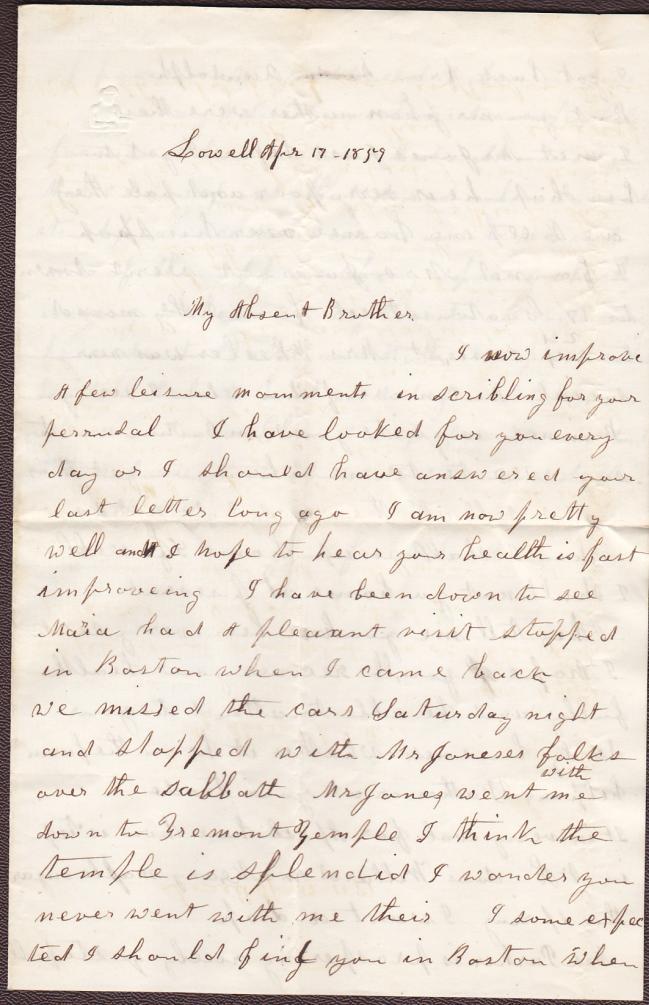 Lowell Apr 17 - 1859
My Absent Brother
I now improve
A few leisure momments in scribling for your
perrusal I have looked for you every
day or I should have answered your
last letter long ago I am now pretty
well and I hope to hear your health is fast
improveing I have been down to see
Maria had A pleasant visit stopped
in Boston when I came back
we missed the cars Saturday night
and stopped with Mr Joneses folks
over the sabbath Mr Jones went with me
down to Tremont Temple I think the
temple is splendid I wonder you
never went with me their I some expec
ted I should find you in Boston when